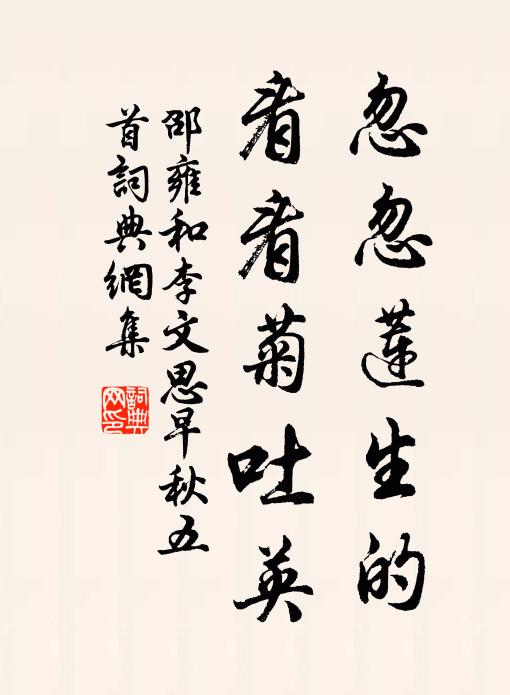 忽忽蓮生的
看看菊吐英
邵雍和李文思早秋五
首詞典網集
詞典
网印